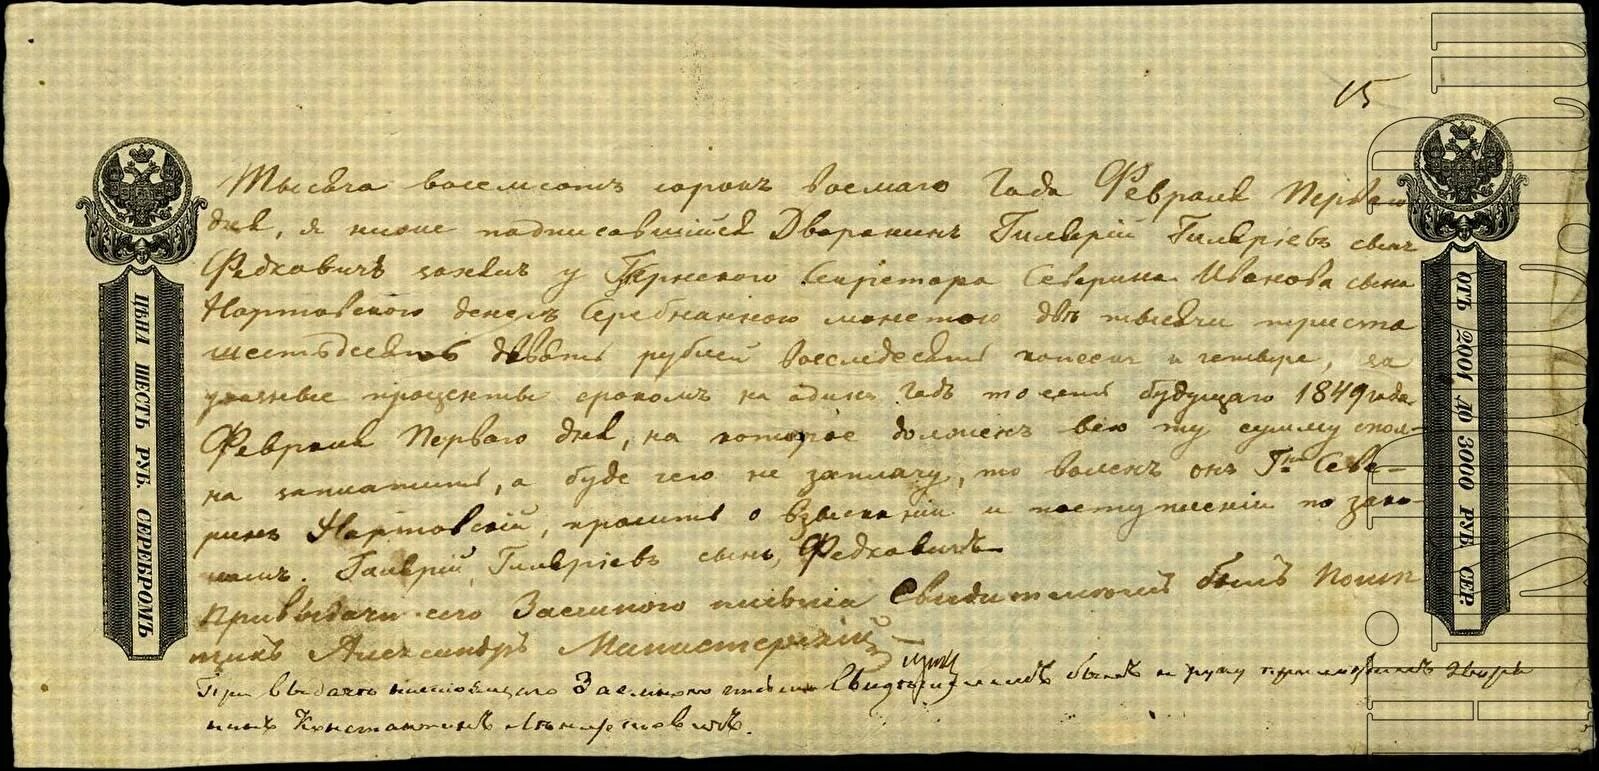 15
Тысяча восемсотъ сорокъ восмаго Года Февраля Перваго
дня, я ниже подписавшійся Дворянинъ Гилярій Гиляріевъ сынъ
Федковичъ занялъ у Губернского Секретара Северина Иванова сына
Нартовского денегъ Серебряною монетою двѣ тысячи триста
шестьдесятъ девять рублей восемдесятъ копеекъ и четыре, за
указные проценты срокомъ на одинъ Годъ то есть будущаго 1849 года
Февраля Перваго дня, на которое долженъ всю ту сумму спол-
на заплатить, а буде чего не заплачу, то воленъ онъ Гнъ Севе-
ринъ Нартовскій, просить о взысканіи и поступленіи по зако-
намъ. Гилярій Гиляріевъ сынъ Федковичъ
При выдачи сего Заемного письма Свидителемъ былъ Помѣ
щикъ Александръ Манастерскій
При выдачѣ настоящаго Заемного письма Свидѣтелемъ былъ и руку приложилъ Дворя
нинъ Константинъ
ЦѢНА ШЕСТЬ РУБ. СЕРЕБРОМЪ
ОТЪ 2001 ДО 3000 РУБ. СЕР.